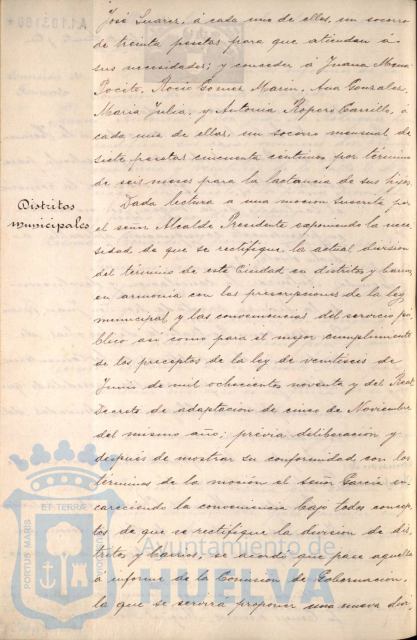 José Suarez, á cada uno de ellos, un socorro
de treinta pesetas para que atiendan á
sus necesidades; y conceder á Juana Mena
Pocito, Rocio Gomez Marin, Ana Gonzalez,
Maria Julia, y Antonia Ropero Carrillo, á
cada una de ellas, un socorro mensual de
siete pesetas cincuenta centimos por término
de seis meses para la lactancia de sus hijos.
Distritos
municipales
Dada lectura a una mocion suscrita por
el señor Alcalde Presidente exponiendo la nece
sidad de que se rectifique la actual division
del termino de esta Ciudad en distritos y barrios
en armonia con las prescripciones de la ley
municipal y las conveniencias del servicio pú
blico así como para el mejor cumplimiento
de los preceptos de la ley de veintiseis de
Junio de mil ochocientos noventa y del Real
Decreto de adaptacion de cinco de Noviembre
del mismo año; previa deliberacion y
después de mostrar su conformidad con los
términos de la mocion el señor Garcia en
careciendo la conveniencia bajo todos concep
tos de que se rectifique la division de dis
tritos y barrios, se acordó que pase aquella
á informe de la Comision de Gobernacion,
la que se servirá proponer una nueva divi
PORTUS MARIS
ET TERRÆ
Ayuntamiento de
HUELVA